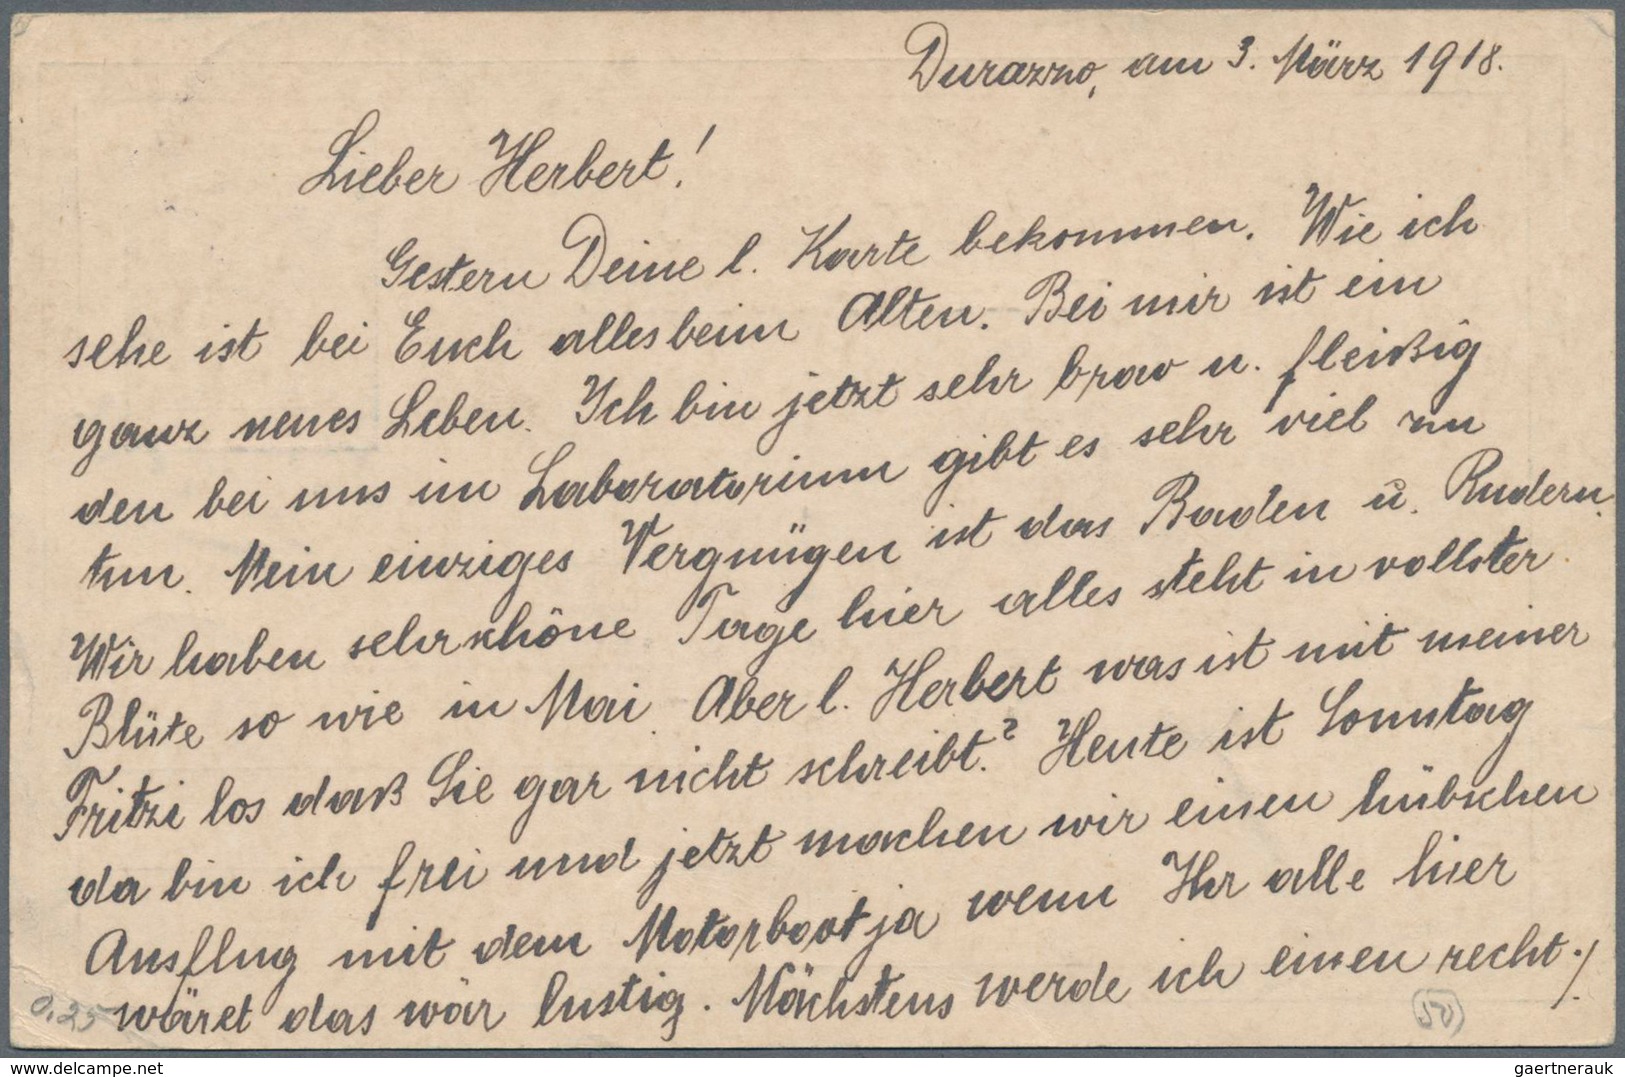 Durazzo, am 3. März 1918.
Lieber Herbert!
Gestern Deine l. Karte bekommen. Wie ich
sehe ist bei Euch alles beim Alten. Bei mir ist ein
ganz neues Leben. Ich bin jetzt sehr brav u. fleißig
den bei uns im Laboratorium gibt es sehr viel zu
tun. Mein einziges Vergnügen ist das Baden u. Rudern.
Wir haben sehr schöne Tage hier alles steht in vollster
Blüte so wie in Mai. Aber l. Herbert was ist mit meiner
Fritzi los daß Sie gar nicht schreibt? Heute ist Sonntag
da bin ich frei und jetzt machen wir einen hübschen
Ausflug mit dem Motorboot ja wenn Ihr alle hier
wäret das wär lustig. Nächstens werde ich einen recht ./.
0.25
50
delcampe.net
gaertnerauk